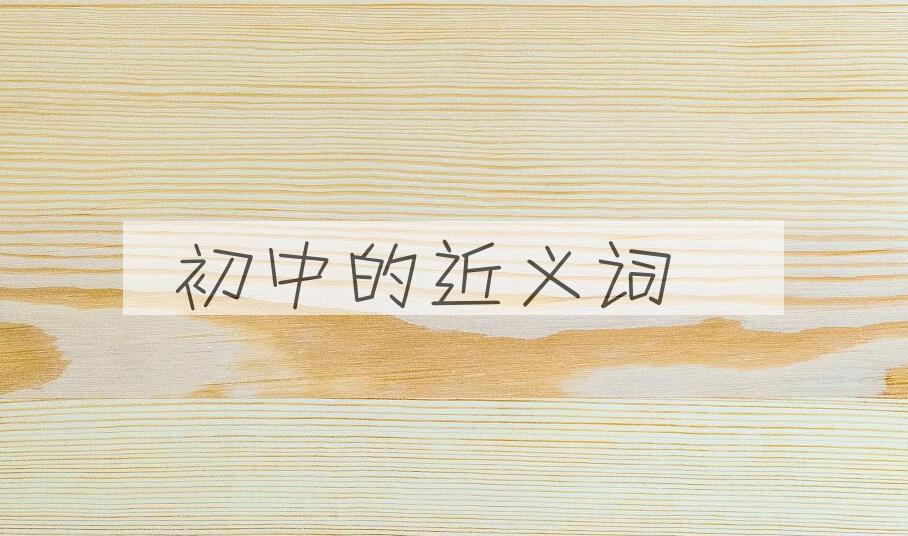 初中的近义词